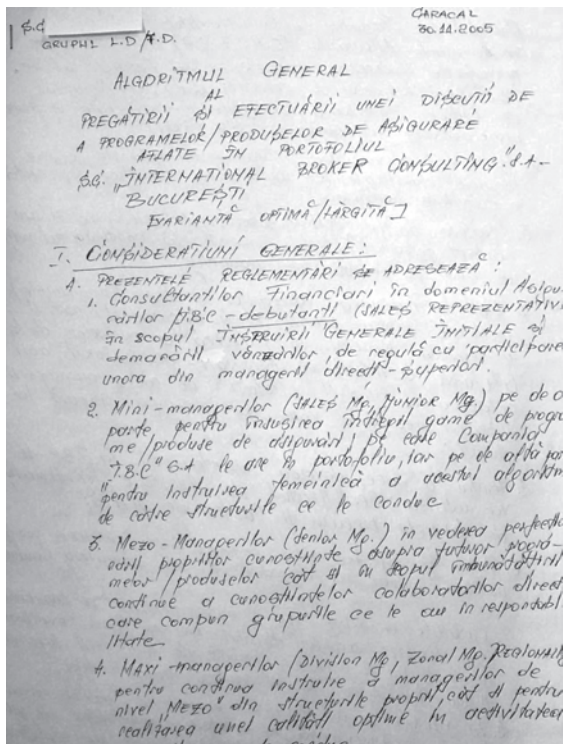 S.C
GRUPUL L.D/V.D.
CARACAL
30.11.2005
ALGORITMUL GENERAL
AL
PREGĂTIRII ȘI EFECTUĂRII UNEI DISCUȚII DE
A PROGRAMELOR/PRODUSELOR DE ASIGURARE
AFLATE ÎN PORTOFOLIUL
S.C. "INTERNATIONAL BROKER CONSULTING" S.A-
BUCUREȘTI
[VARIANTĂ OPTIMĂ/LĂRGITĂ]
I. CONSIDERAȚIUNI GENERALE:
A. PREZENTELE REGLEMENTĂRI SE ADRESEAZĂ:
1. Consultanților Financiari în domeniul Asigu
rărilor - debutanți (SALES REPREZENTATIVI
în scopul INSTRUIRII GENERALE INIȚIALE și
demarării vânzărilor, de regulă cu participare
unora din managerii direcți-superiori.
2. Mini-managerilor (SALES Mg, JUNIOR Mg.) pe de o
parte, pentru însușirea întregii game de progra
me/produse de asigurări, pe care Compania
"I.B.C" S.A le are în portofoliu, iar pe de altă par
pentru instruirea temeinică a acestui algoritm
de către structurile ce le conduc
3. Mezo-Managerilor (Senior Mg.) în vederea perfecțio
nării propriilor cunoștințe asupra tuturor progra-
melor/produselor cât și în scopul îmbunătățirii
continue a cunoștințelor colaboratorilor direcț
care compun grupurile ce le au în responsabi
litate
4. Maxi-managerilor (Division Mg, Zonal Mg. REGIONAL
pentru continua instruire a managerilor de
nivel "MEZO" din structurile proprii cât și pentru
realizarea unei calități optime în activitatea